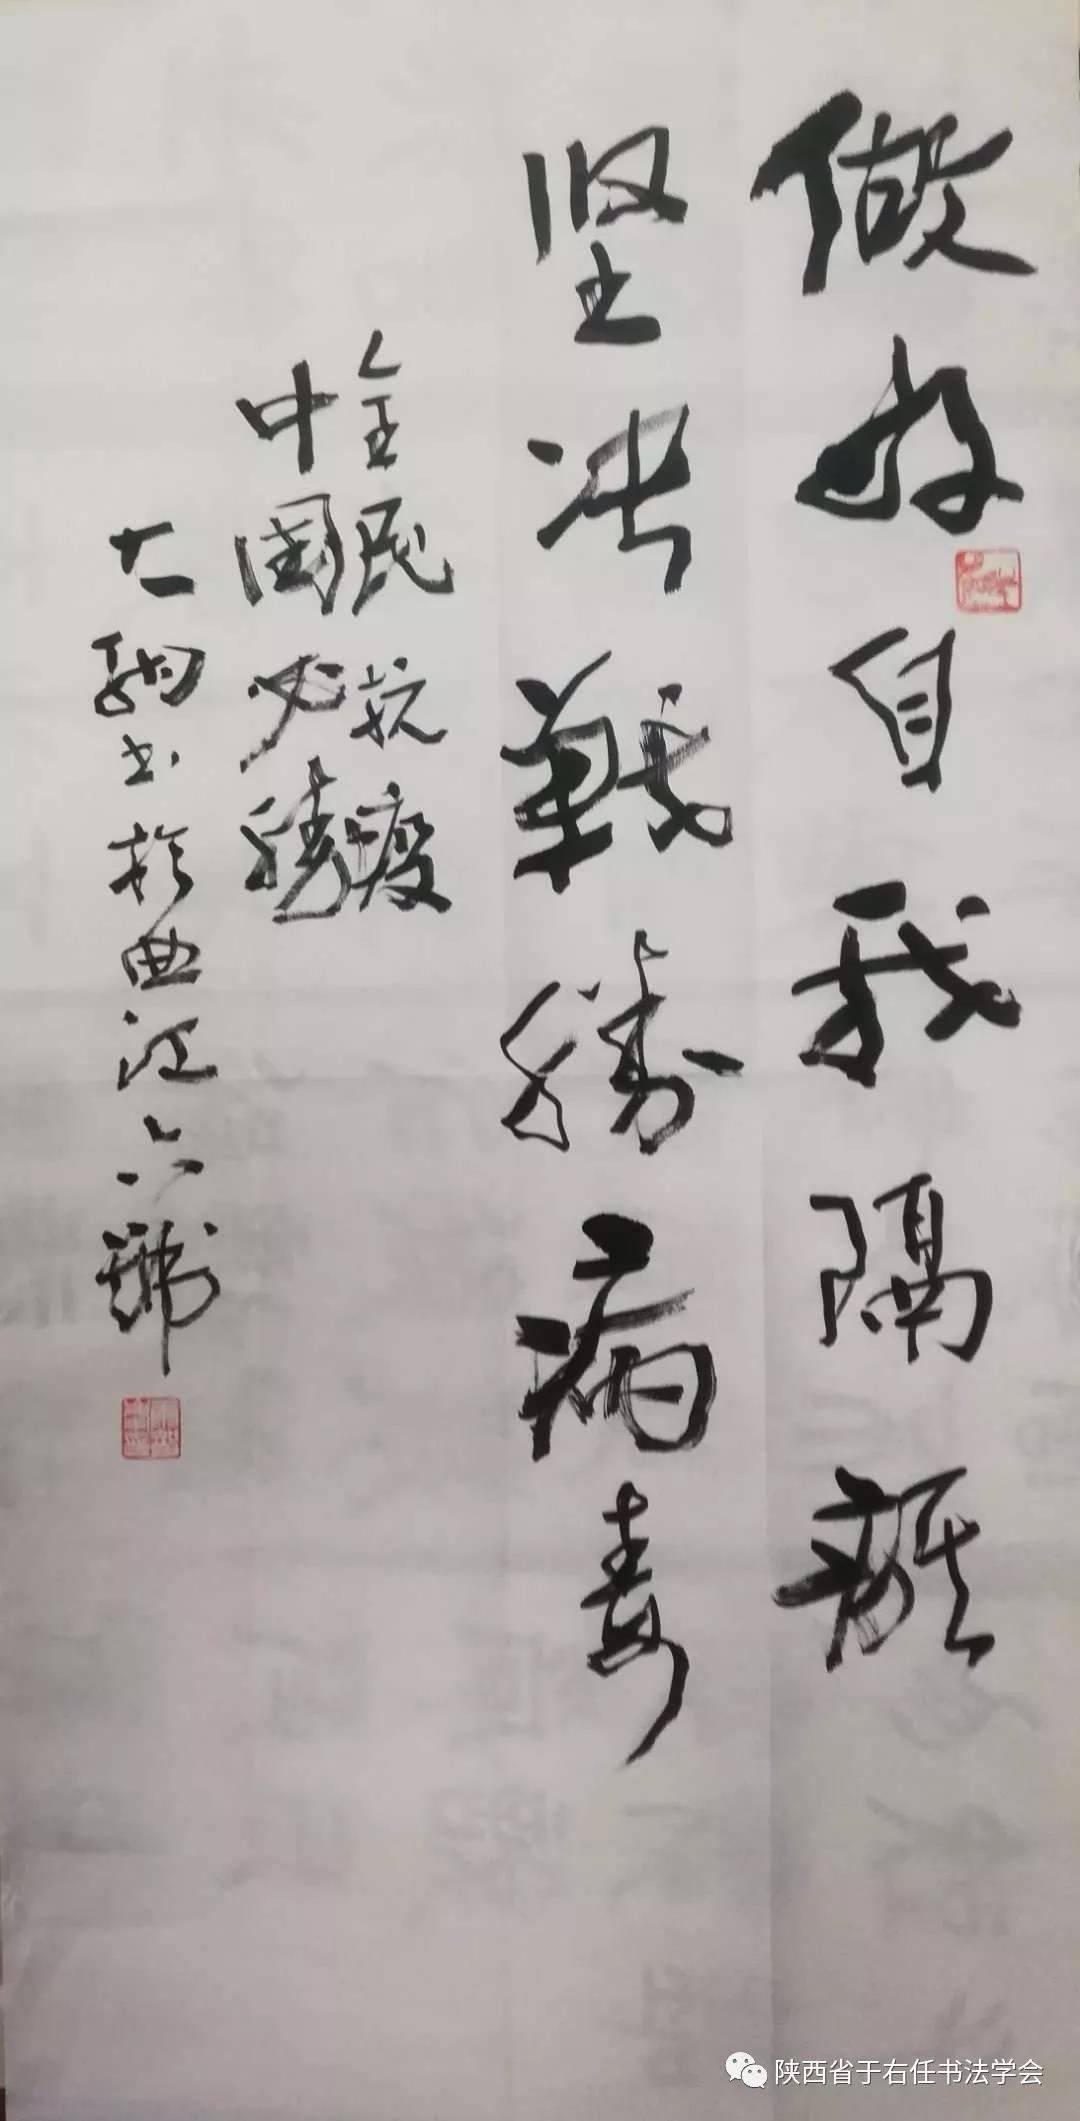 做好自我隔離
坚决戰勝病毒
全民抗疫
中国必勝
大駒书於曲江六號
陕西省于右任书法学会